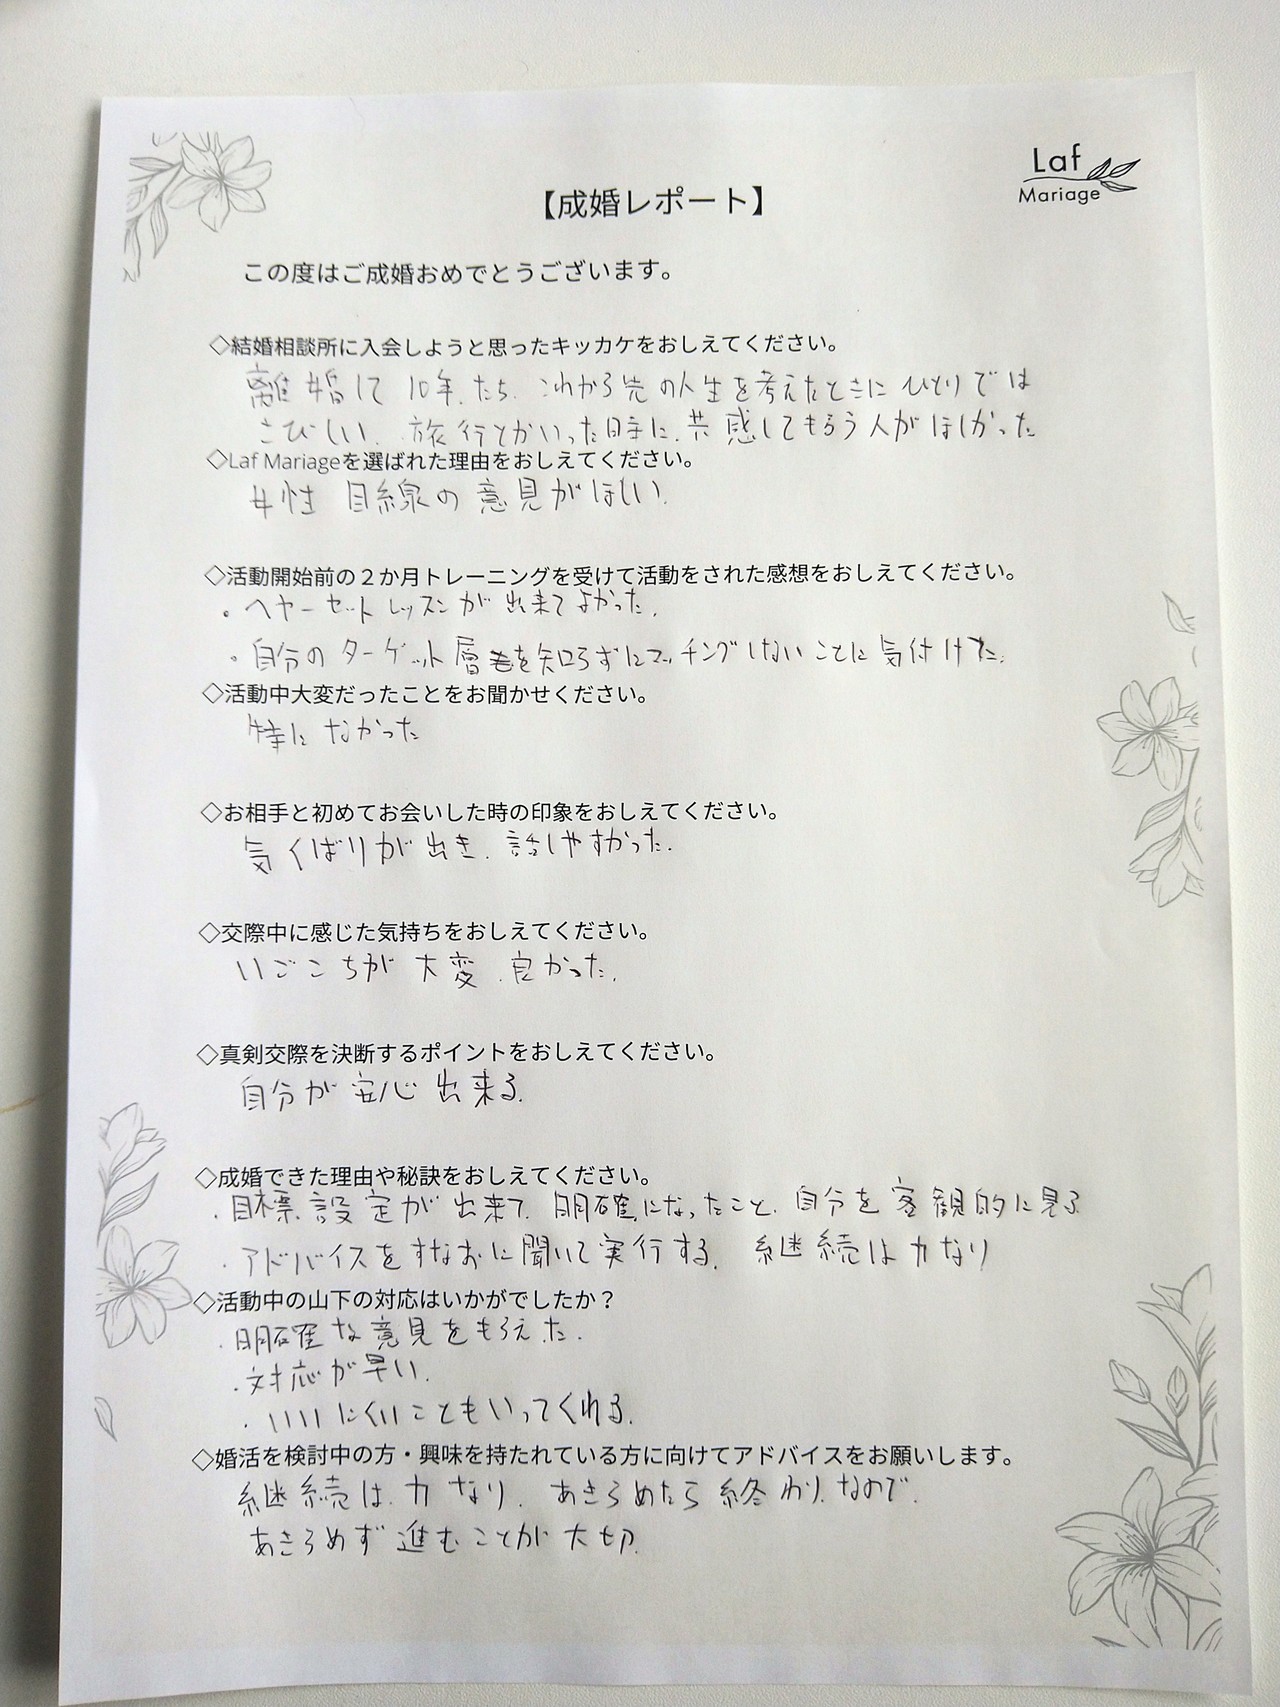 Laf
Mariage
【成婚レポート】
この度はご成婚おめでとうございます。
◇結婚相談所に入会しようと思ったキッカケをおしえてください。
離婚して10年.たち.これから先の人生を考えたときにひとりでは
さびしい.旅行とかいった時に.共感してもらう人がほしかった
◇Laf Mariageを選ばれた理由をおしえてください。
女性目線の意見がほしい.
◇活動開始前の２か月トレーニングを受けて活動をされた感想をおしえてください。
・ヘヤーセットレッスンが出来てよかった.
・自分のターゲット層を知らずにマッチングしないことに気付けた.
◇活動中大変だったことをお聞かせください。
特になかった
◇お相手と初めてお会いした時の印象をおしえてください。
気くばりが出き.話しやすかった.
◇交際中に感じた気持ちをおしえてください。
いごこちが大変.良かった.
◇真剣交際を決断するポイントをおしえてください。
自分が安心出来る.
◇成婚できた理由や秘訣をおしえてください。
・目標.設定が出来て.明確になったこと.自分を客観的に見る
・アドバイスをすなおに聞いて実行する.継続は力なり
◇活動中の山下の対応はいかがでしたか？
・明確な意見をもらえた.
・対応が早い.
・いいにくいこともいってくれる.
◇婚活を検討中の方・興味を持たれている方に向けてアドバイスをお願いします。
継続は.力なり.あきらめたら終わり.なので.
あきらめず進むことが大切.